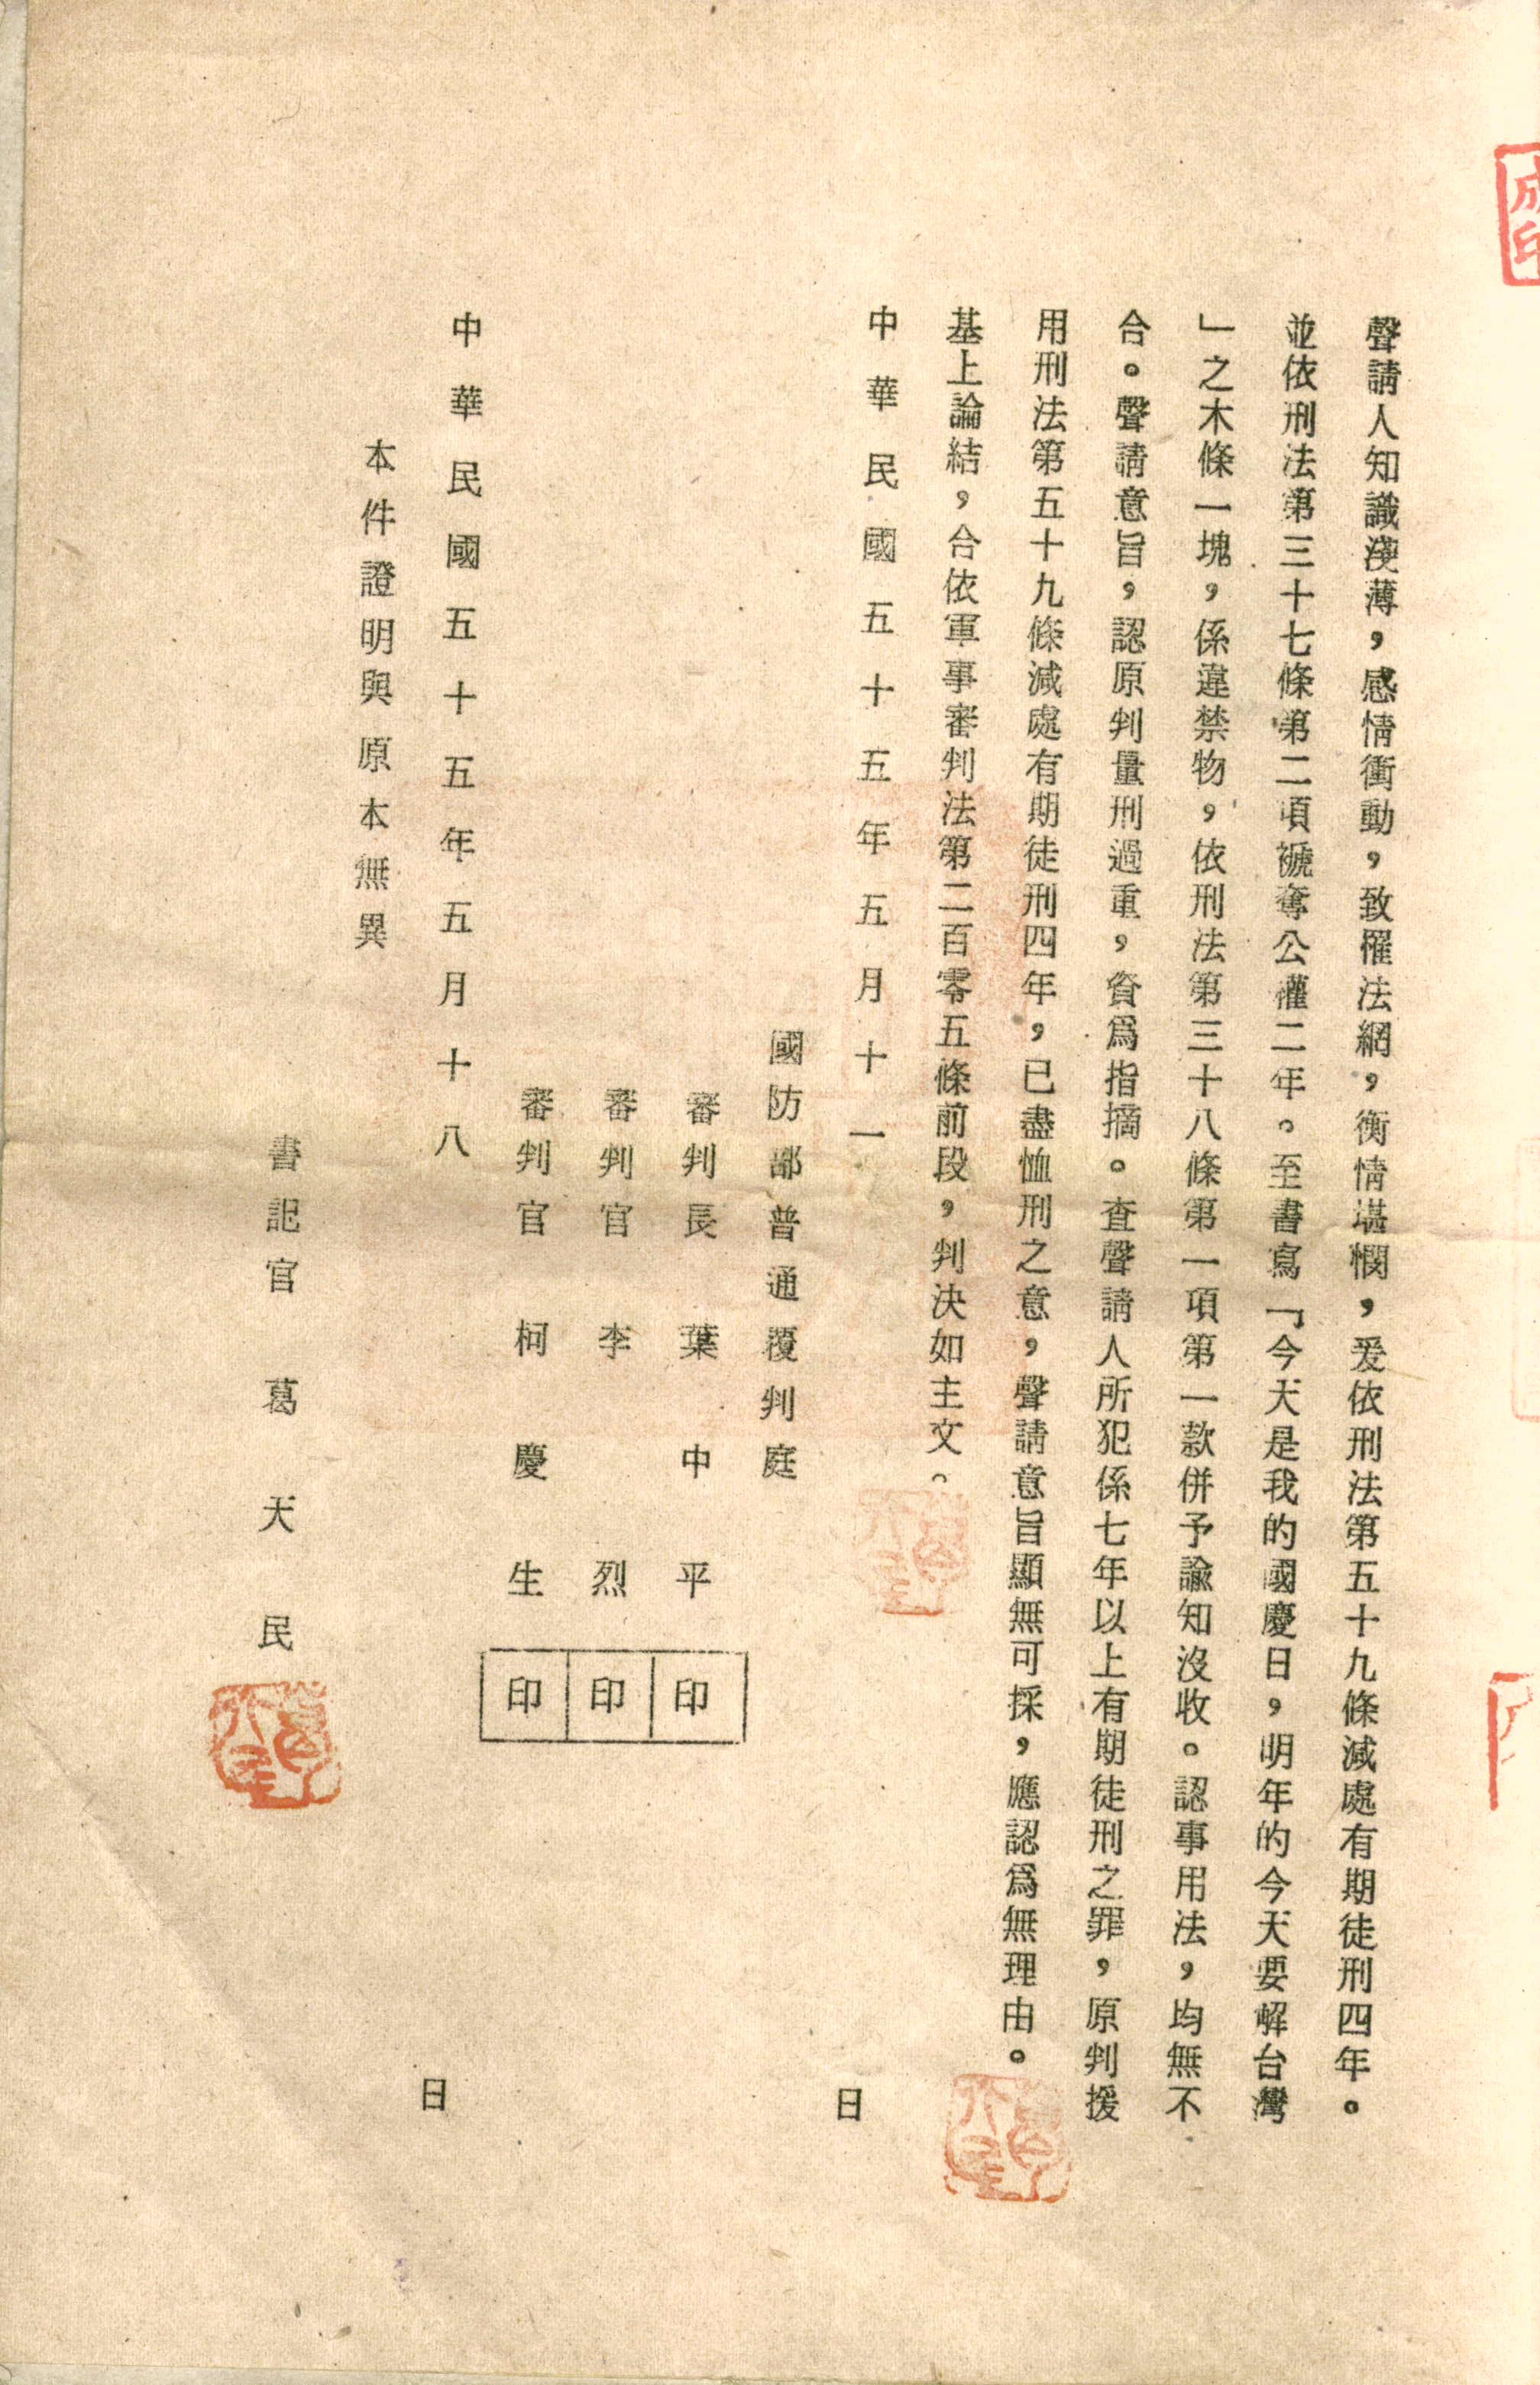 聲請人知識淺薄，感情衝動，致罹法網，衡情堪憫，爰依刑法第五十九條減處有期徒刑四年。
並依刑法第三十七條第二項褫奪公權二年。至書寫「今天是我的國慶日，明年的今天要解台灣
」之木條一塊，係違禁物，依刑法第三十八條第一項第一款併予諭知沒收。認事用法，均無不
合。聲請意旨，認原判量刑過重，資爲指摘。查聲請人所犯係七年以上有期徒刑之罪，原判援
用刑法第五十九條減處有期徒刑四年，已盡恤刑之意，聲請意旨顯無可採，應認爲無理由。
基上論結，合依軍事審判法第二百零五條前段，判決如主文。
中華民國五十五年五月十一日
國防部普通覆判庭
審判長 葉中平 印
審判官 李烈 印
審判官 柯慶生 印
中華民國五十五年五月十八日
本件證明與原本無異
書記官 葛天民